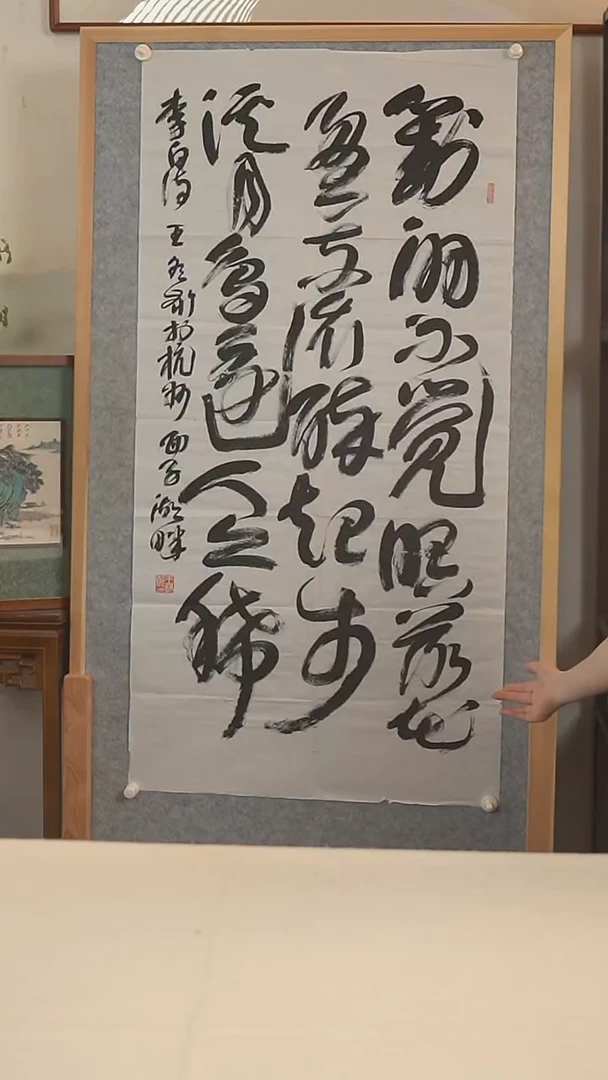 對酒不覺瞑落花
盈我衣醉起步
溪月鳥還人亦稀
李白詩 王冬齡於杭州 西子湖畔